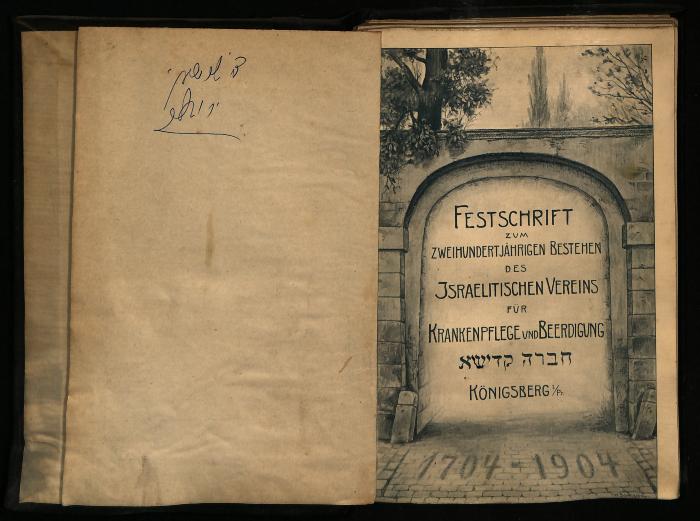 FESTSCHRIFT
ZUM
ZWEIHUNDERTJÄHRIGEN BESTEHEN
DES
ISRAELITISCHEN VEREINS
FÜR
KRANKENPFLEGE UND BEERDIGUNG
חברה קדישא
KÖNIGSBERG i/Pr.
1704-1904